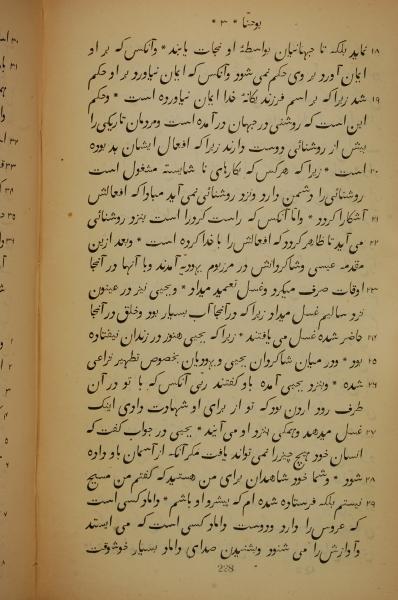 یوحنّا * ۳ *
۱۸ نماید بلکه تا جهانیان بواسطهٔ او نجات یابند * وآنکس که بر او
ایمان آورد بر وی حکم نمی شود وآنکس که ایمان نیاورد بر او حکم
۱۹ شد زیرا که بر اسم فرزند یکانهٔ خدا ایمان نیاورده است * وحکم
این است که روشنی در جهان در آمده است ومردمان تاریکی را
بیش از روشنائی دوست دارند زیرا که افعال ایشان بد بوده
۲۰ است * زیرا که هرکس که بکارهای نا شایسته مشغول است
روشنائی را دشمن دارد ونزد روشنائی نمی آید مبادا که افعالش
۲۱ آشکارا کردد * وامّا آنکس که راست کردار است بنزد روشنائی
۲۲ می آید تا ظاهر کردد که افعالش را با خدا کرده است * وبعد ازین
مقدمه عیسی وشاکردانش در مرزبوم یهودیّه آمدند وبا آنها در آنجا
۲۳ اوقات صرف میکرد وغسل تعمید میداد * ویحیی نیز در عینون
نزد سالیم غسل میداد زیرا که در آنجا آب بسیار بود وخلق در آنجا
۲۴ حاضر شده غسل می یافتند * زیرا که یحیی هنوز در زندان نیفتاده
۲۵ بود * ودر میان شاکردان یحیی ویهودیان بخصوص تطهیر نزاعی
۲۶ شده * وبنزد یحیی آمده باو کفتند ربی آنکس که با تو در آن
طرف رود اردن بود که تو از برای او شهادت دادی اینک
۲۷ غسل میدهد وهمکی بنزد او می آیند * یحیی در جواب کفت که
انسان خود هیچ چیز را نمی تواند یافت مکر آنکه از آسمان باو داده
۲۸ شود * وشما خود شاهدان برای من هستید که کفتم من مسیح
۲۹ نیستم بلکه فرستاده شده ام که پیشرو او باشم * داماد کسی است
که عروس را دارد ودوست داماد کسی است که می ایستد
وآوازش را می شنود وبشنیدن صدای داماد بسیار خوشوقت
228